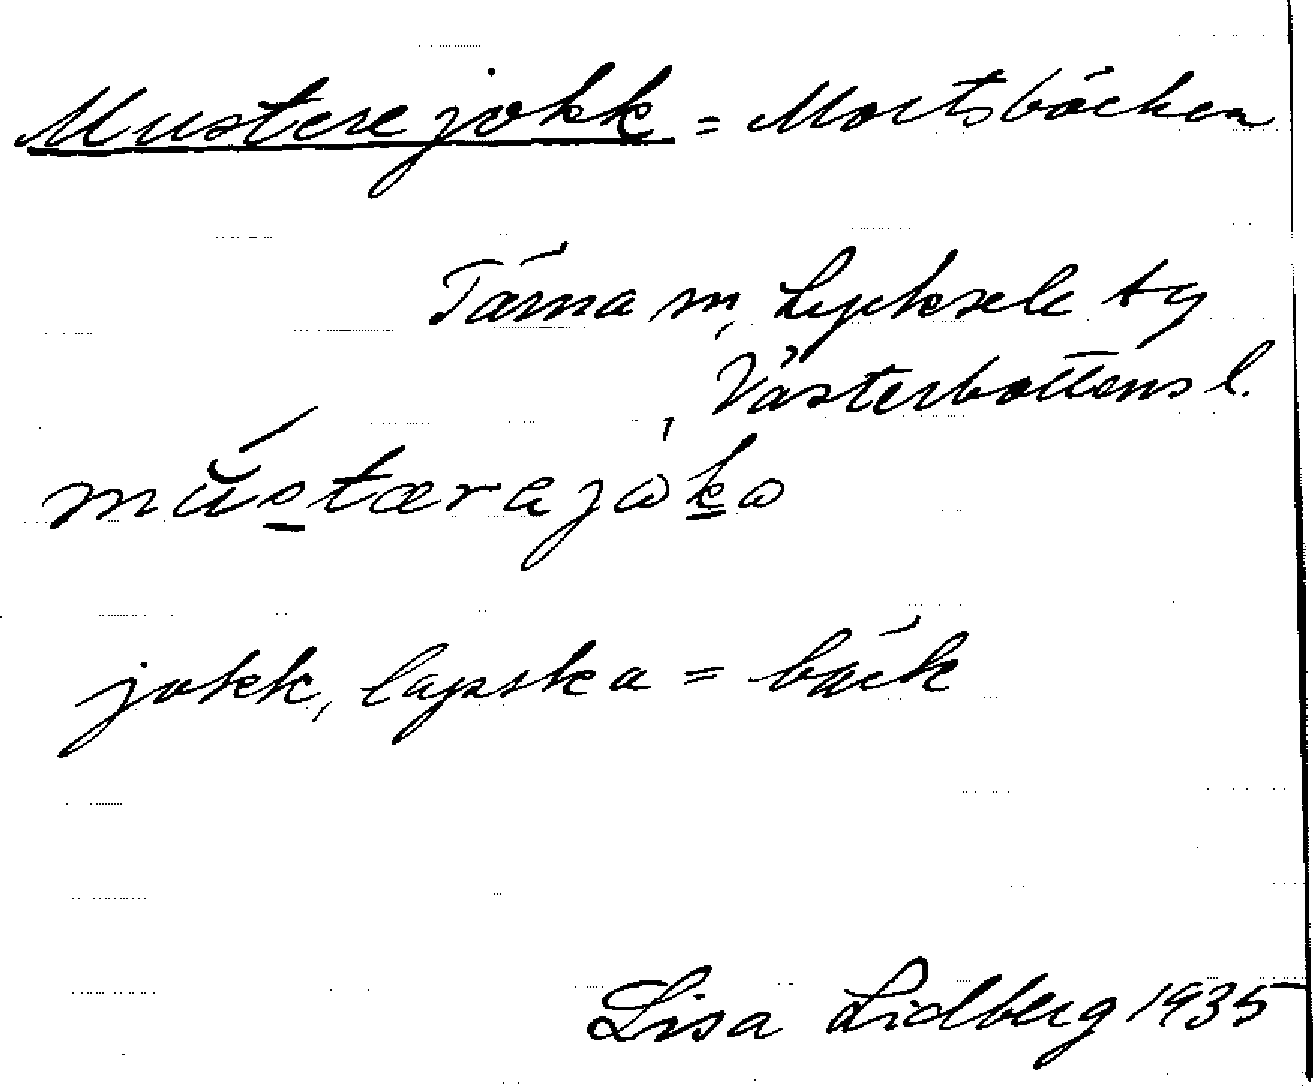 Musterejokk = Mortsbäcken
Tärna sn, Lycksele tg
Västerbottens l.
mŭ́stærajåkå
jokk, lapska = bäck
Lisa Lidberg 1935